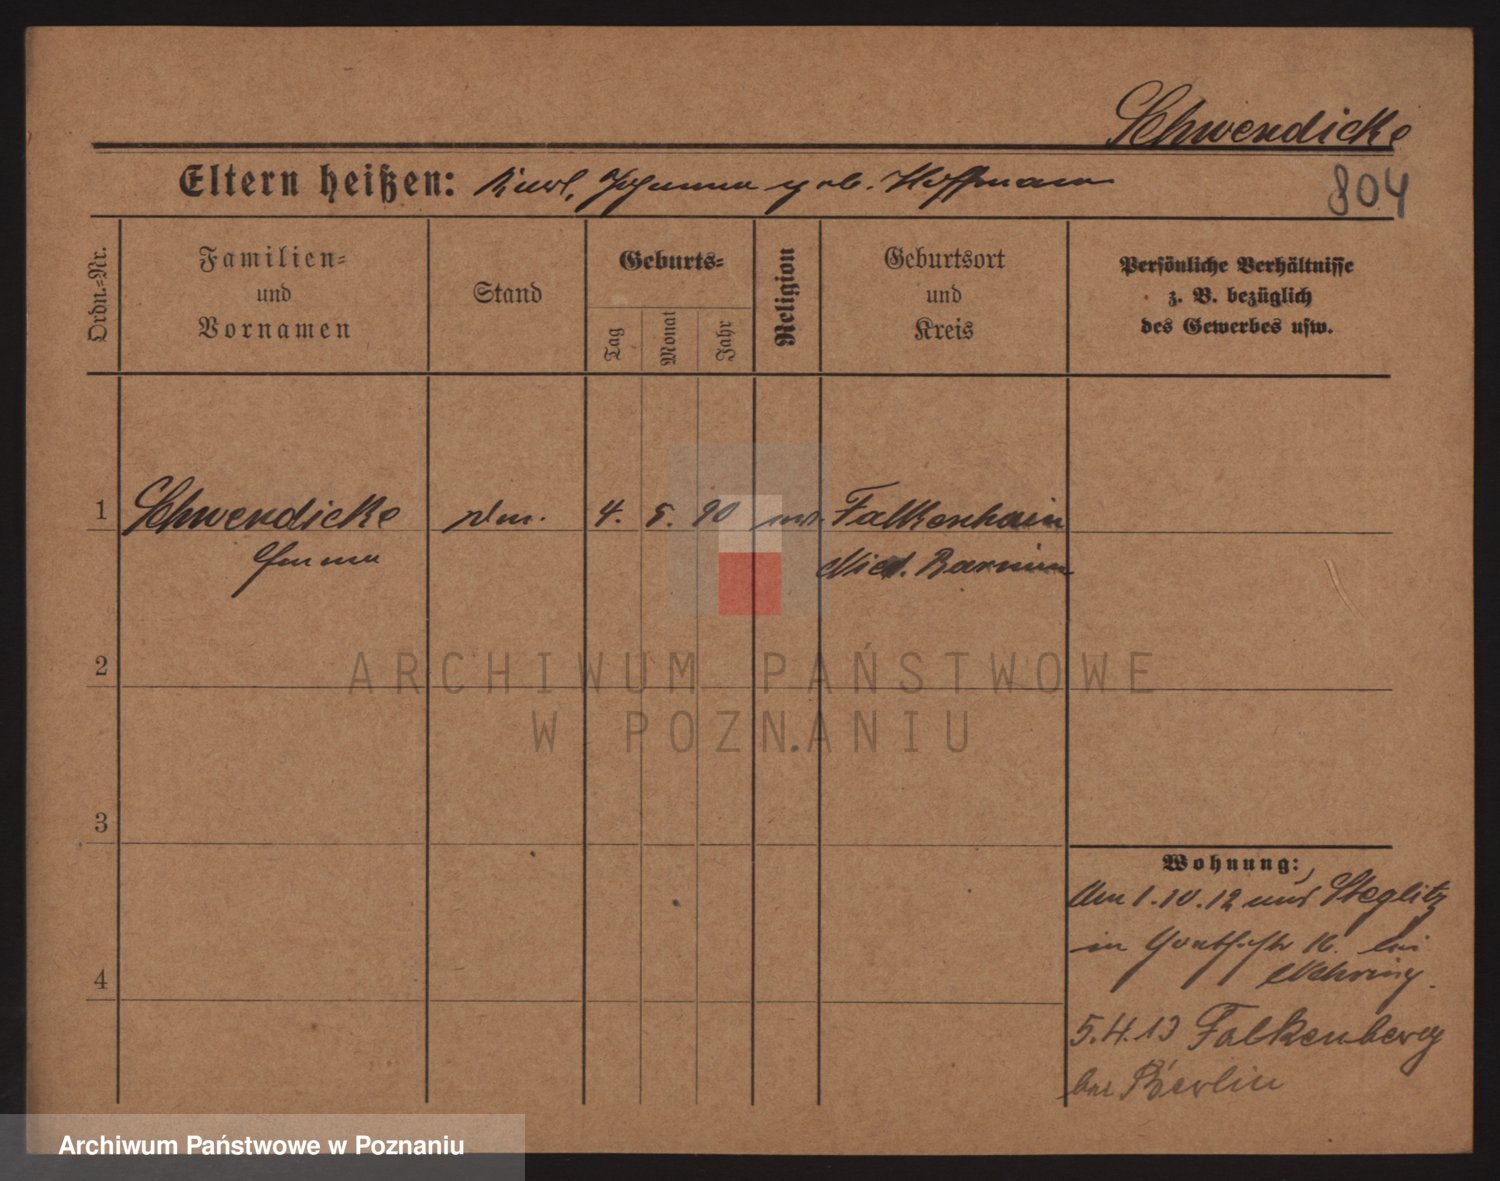 Schwendicke
Eltern heißen: Karl, Johanna geb. Hoffmann
804
Ordn.-Nr.
Familien-
und
Vornamen
Stand
Geburts-
Tag
Monat
Jahr
Religion
Geburtsort
und
Kreis
Persönliche Verhältnisse
z. B. bezüglich
des Gewerbes usw.
1 Schwendicke 4. 5. 90 Falkenhain
Emma Nied. Barnim
2
3
4
Wohnung:
Am 1.10.12 aus Steglitz
in 16. bei
Nehring.
5.4.13 Falkenberg
bei Berlin
ARCHIWUM PAŃSTWOWE
W POZNANIU
Archiwum Państwowe w Poznaniu